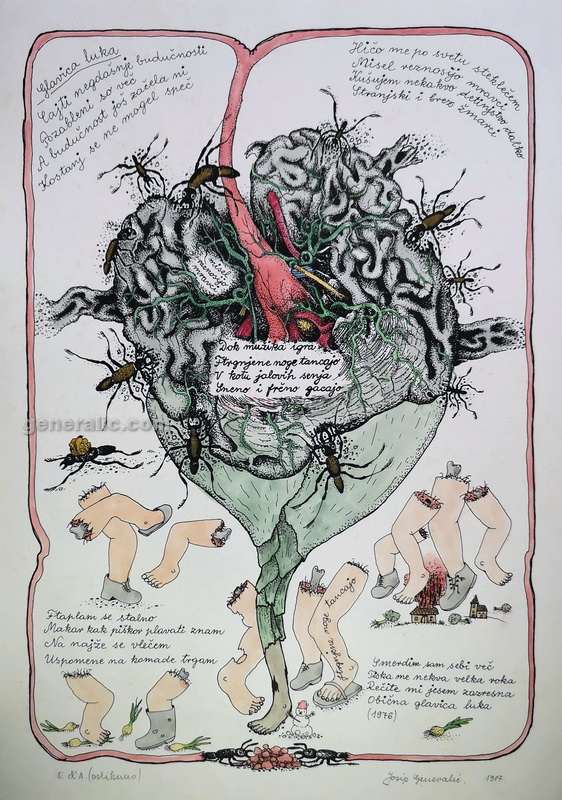 Glavica luka
Cajti negdašnje budučnosti
Pozableni so već
A budučnost još začela ni
Kostany se ne mogel speč
Hičo me po svetu steklečem
Misel reznosijo mravci
Kušujem nekakvo detinjstvo dalko
Stranjski i brez žmarci
Dok mužika igra
Ftrgnjene noge tancajo
V kotu jalovih senja
Sneno i frčno gacajo
generalic.com
noge tancajo
Ftaplam se stalno
Makar kak piškor plavati znam
Na najže se vlečem
Uspomene na komade trgam
Smerdim sam sebi več
Itska me nekva velka roka
Rečite mi jesem zazresna
Obična glavica luka
(1976)
E. d'A (oslikano)
Josip Generalić, 1987